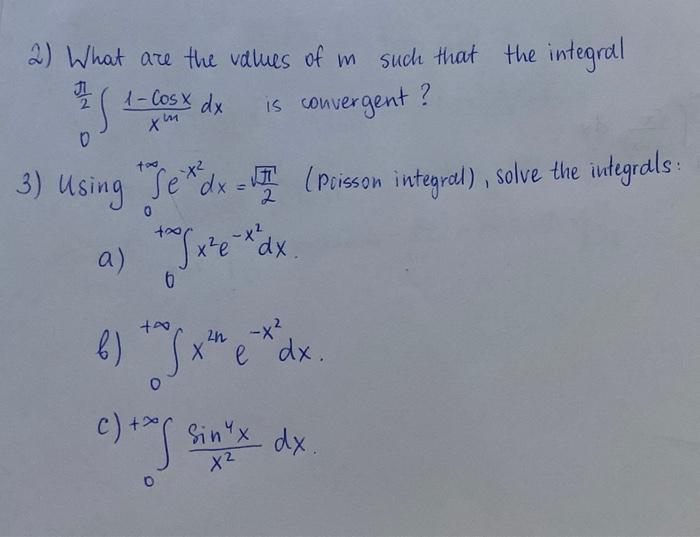 2) What are the values of m such that the integral
π/2 ∫ 0 (1-cosx)/x^m dx is convergent?
3) Using +∞ ∫ 0 e^-x² dx = √π/2 (Poisson integral), solve the integrals:
a) +∞ ∫ 0 x²e^-x² dx.
b) +∞ ∫ 0 x^2n e^-x² dx.
c) +∞ ∫ 0 sin⁴x/x² dx.